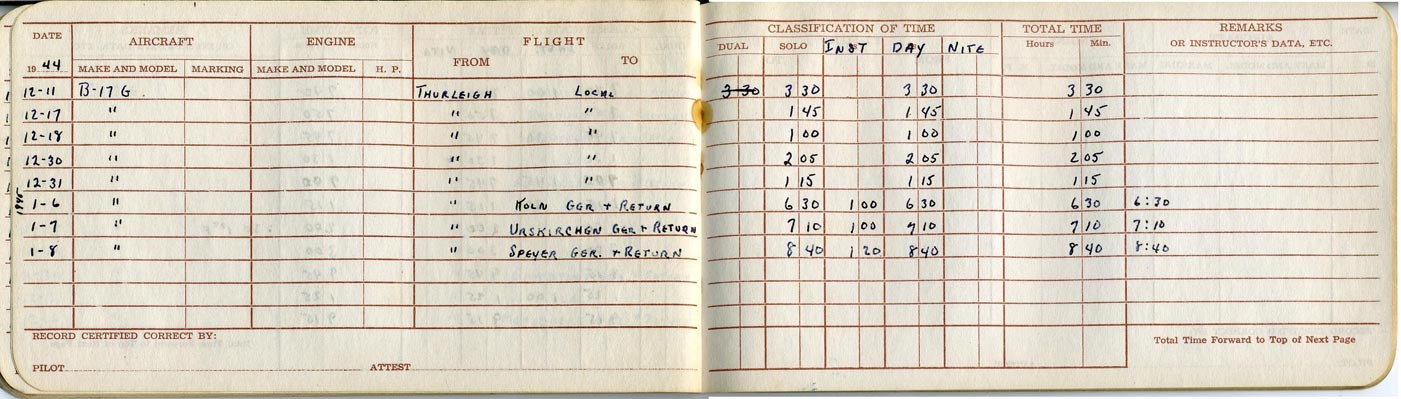 DATE AIRCRAFT ENGINE FLIGHT CLASSIFICATION OF TIME TOTAL TIME REMARKS
19 44 MAKE AND MODEL MARKING MAKE AND MODEL H. P. FROM TO DUAL SOLO INST DAY NITE Hours Min. OR INSTRUCTOR'S DATA, ETC.
12-11 B-17 G THURLEIGH LOCAL 3 30 3 30 3 30 3 30
12-17 " " " 1 45 1 45 1 45
12-18 " " " 1 00 1 00 1 00
12-30 " " " 2 05 2 05 2 05
12-31 " " " 1 15 1 15 1 15
1945
1-6 " " KOLN GER + RETURN 6 30 1 00 6 30 6 30 6:30
1-7 " " URSKIRCHEN GER + RETURN 7 10 1 00 7 10 7 10 7:10
1-8 " " SPEYER GER. + RETURN 8 40 1 20 8 40 8 40 8:40
RECORD CERTIFIED CORRECT BY: Total Time Forward to Top of Next Page
PILOT ATTEST